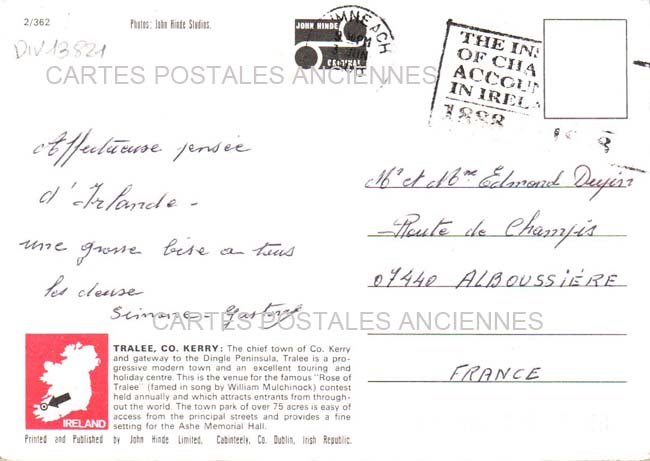 2/362
Photos: John Hinde Studios.
DIV13821
JOHN HINDE
ORIGINAL
THE INS
OF CHA
ACCOUN
IN IRELA
1888
CARTES POSTALES ANCIENNES
Affectueuse pensée
d'Irlande -
une grosse bise a tous
les deux
Simone - Gaston
Mr et Mme Edmond
Route de Champis
07440 ALBOUSSIÈRE
FRANCE
CARTES POSTALES ANCIENNES
IRELAND
TRALEE, CO. KERRY: The chief town of Co. Kerry
and gateway to the Dingle Peninsula, Tralee is a pro-
gressive modern town and an excellent touring and
holiday centre. This is the venue for the famous "Rose of
Tralee" (famed in song by William Mulchinock) contest
held annually and which attracts entrants from through-
out the world. The town park of over 75 acres is easy of
access from the principal streets and provides a fine
setting for the Ashe Memorial Hall.
Printed and Published by John Hinde Limited, Cabinteely, Co. Dublin, Irish Republic.